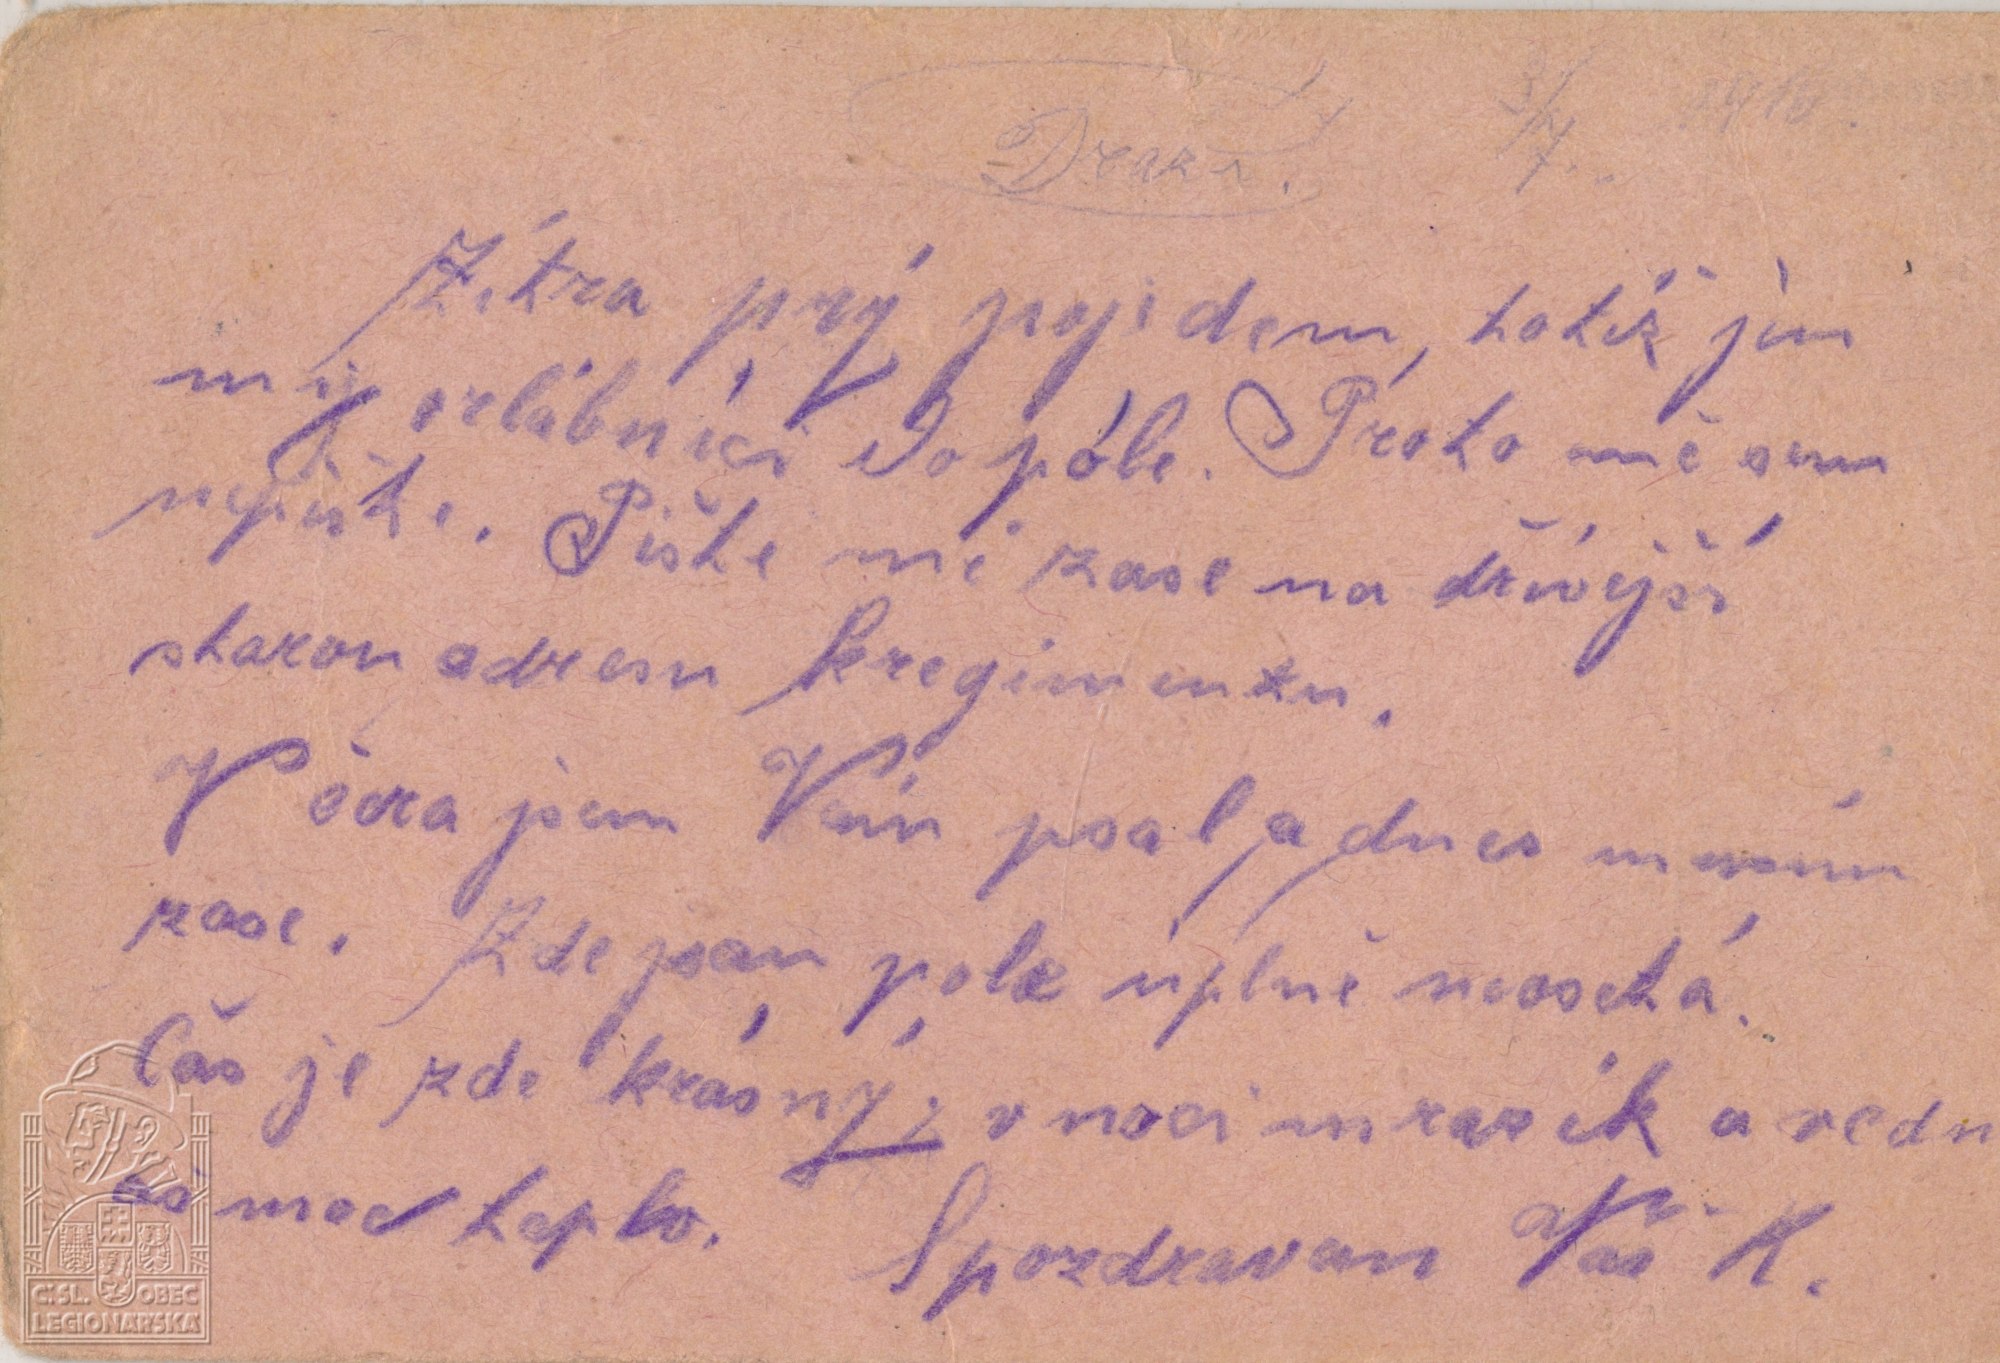 Drazí. 3/4.. 1916.
Zítra prý pojidem, totiž jen
my zrlábníci Do póle. Próto mě sem
nepište. Pište mě zase na dřívější
starou adresu k regimentu.
Včera jsem Vám psal a dnes musím
zase. Zde jsou pole úplně neosetá.
Čas je zde krásný, v noci mrazík a vedn
es moc teplo. S pozdravem Váš K.
Č. SL. OBEC
LEGIONÁŘSKÁ